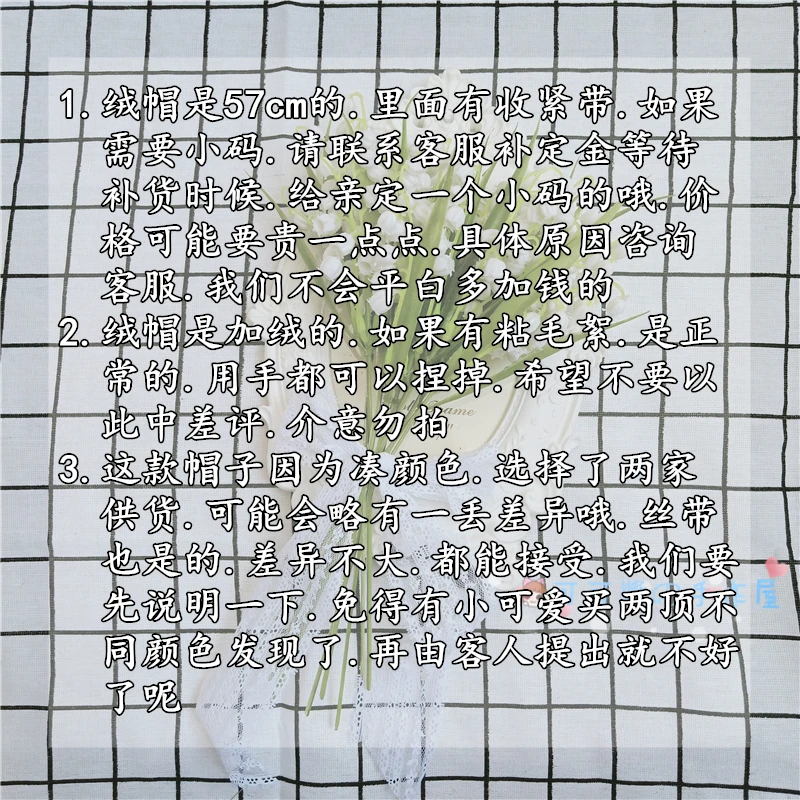 1. 绒帽是57cm的.里面有收紧带.如果
需要小码.请联系客服补定金等待
补货时候.给亲定一个小码的哦.价
格可能要贵一点点.具体原因咨询
客服.我们不会平白多加钱的
2. 绒帽是加绒的.如果有粘毛絮.是正
常的.用手都可以捏掉.希望不要以
此中差评.介意勿拍
3. 这款帽子因为凑颜色.选择了两家
供货.可能会略有一丢差异哦.丝带
也是的.差异不大.都能接受.我们要
先说明一下.免得有小可爱买两顶不
同颜色发现了.再由客人提出就不好
了呢